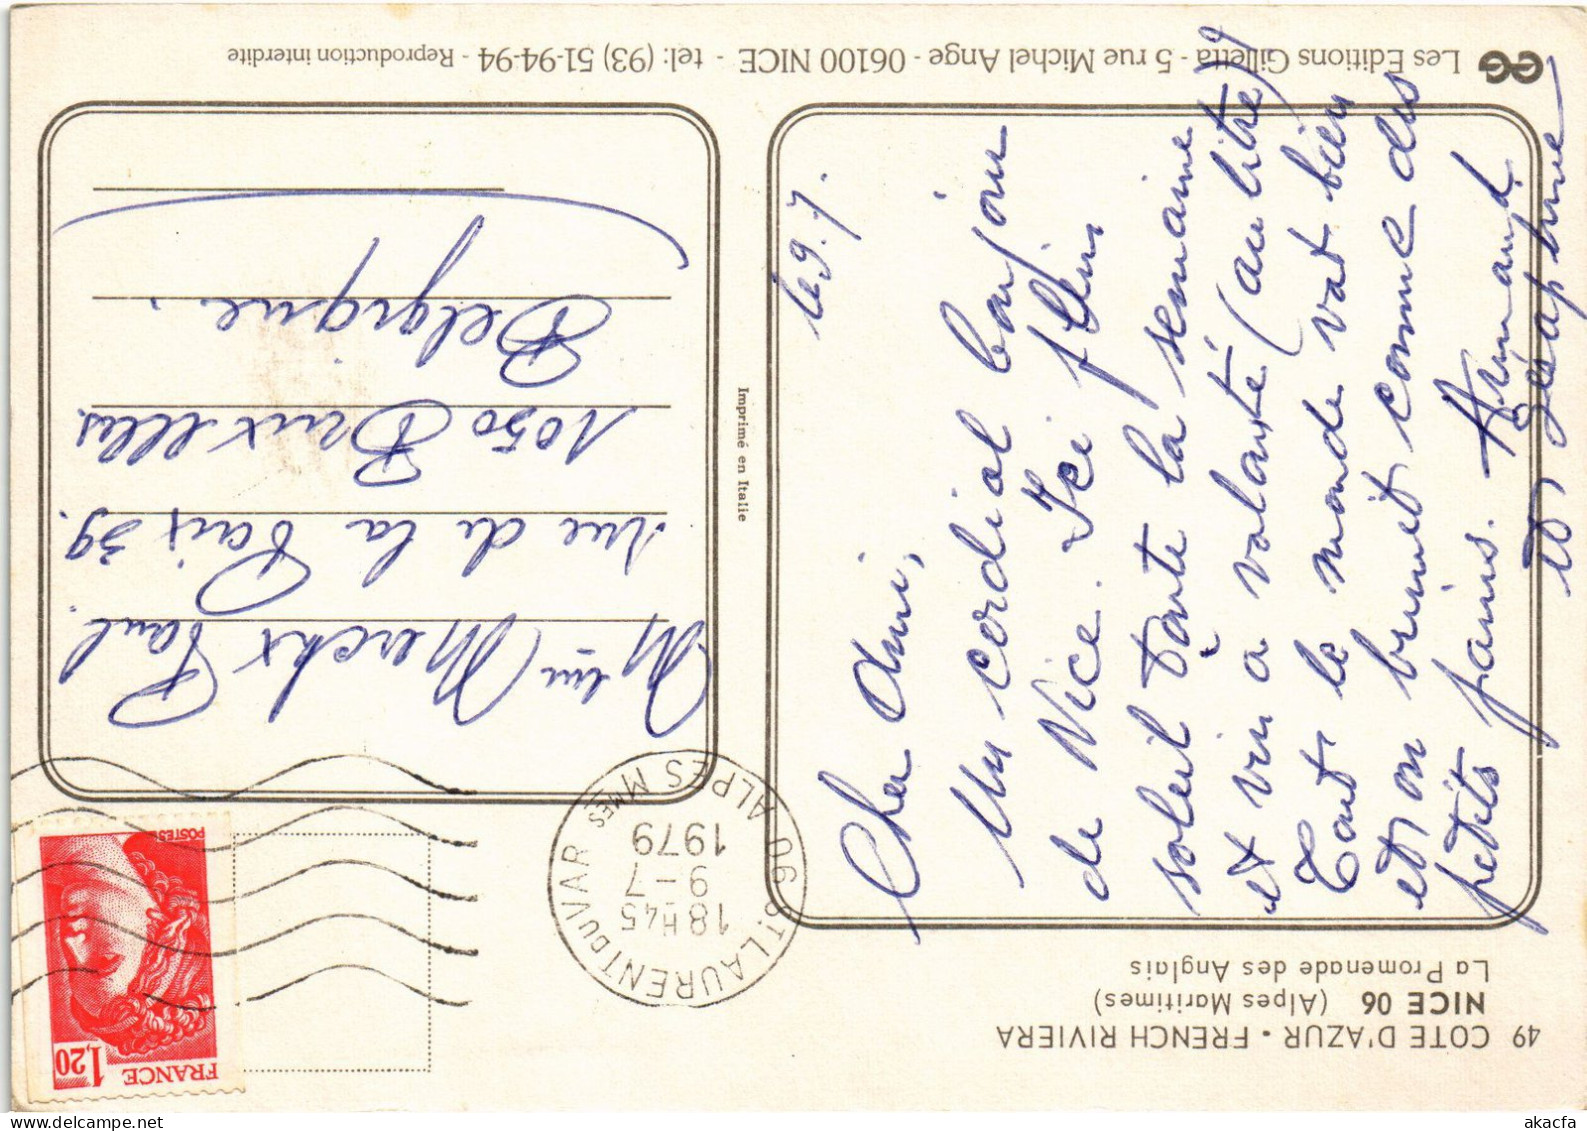 49 COTE D'AZUR • FRENCH RIVIERA
NICE 06 (Alpes Maritimes)
La Promenade des Anglais
le 9.7.
Cher Ami,
Un cordial bonjour
de Nice. Ici plein
soleil toute la semaine
et vin à volonté (au litre)
Tout le monde vat bien
et on brunit comme des
petits pains. Armand
et Séraphine
FRANCE
1,20
POSTES
06 ST LAURENT DU VAR
ALPES MMES
18H45
9-7
1979
Merckx Paul
rue de la Paix 39.
1050 Bruxelles.
Belgique.
Imprimé en Italie
Les Editions Gilletta - 5 rue Michel Ange - 06100 NICE - tel: (93) 51-94-94 - Reproduction interdite
www.delcampe.net
akacfa